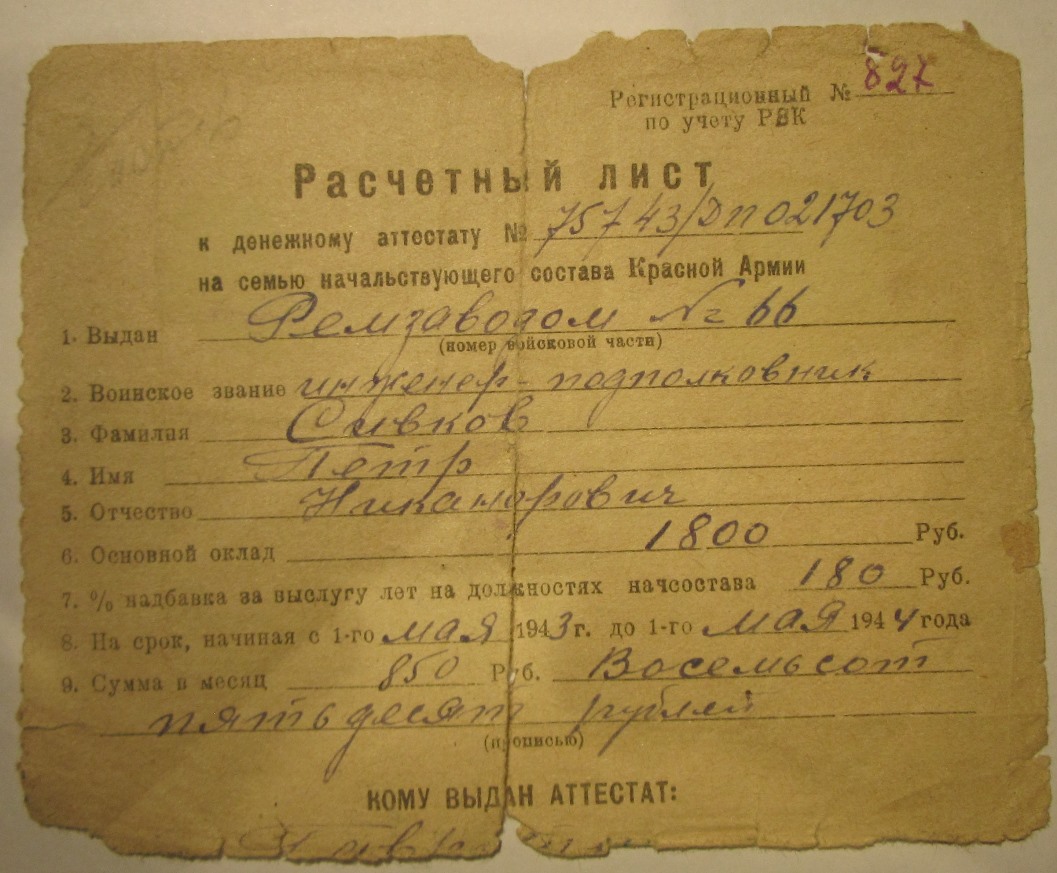 Регистрационный № 827
по учету РВК
Расчетный лист
к денежному аттестату № 75743/ДП021703
на семью начальствующего состава Красной Армии
1. Выдан Ремзаводом № 66
(номер войсковой части)
2. Воинское звание инженер-подполковник
3. Фамилия Сивков
4. Имя Петр
5. Отчество Никанорович
6. Основной оклад 1800 Руб.
7. % надбавка за выслугу лет на должностях начсостава 180 Руб.
8. На срок, начиная с 1-го мая 1943 г. до 1-го мая 1944 года
9. Сумма в месяц 850 Руб. Восемьсот
пятьдесят рублей
(прописью)
КОМУ ВЫДАН АТТЕСТАТ: